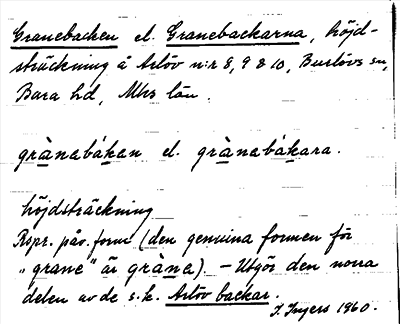 Granebacken el. Granebackarna, höjd-
sträckning å Arlöv n:r 8, 9 & 10, Burlövs sn,
Bara hd, Mhs län.
grànabákan el. grànabákara.
höjdsträckning
Rspr. påv. form (den genuina formen för
"grane" är gràna). – Utgör den norra
delen av de s.k. Arlöv backar.
I. Ingers 1960.